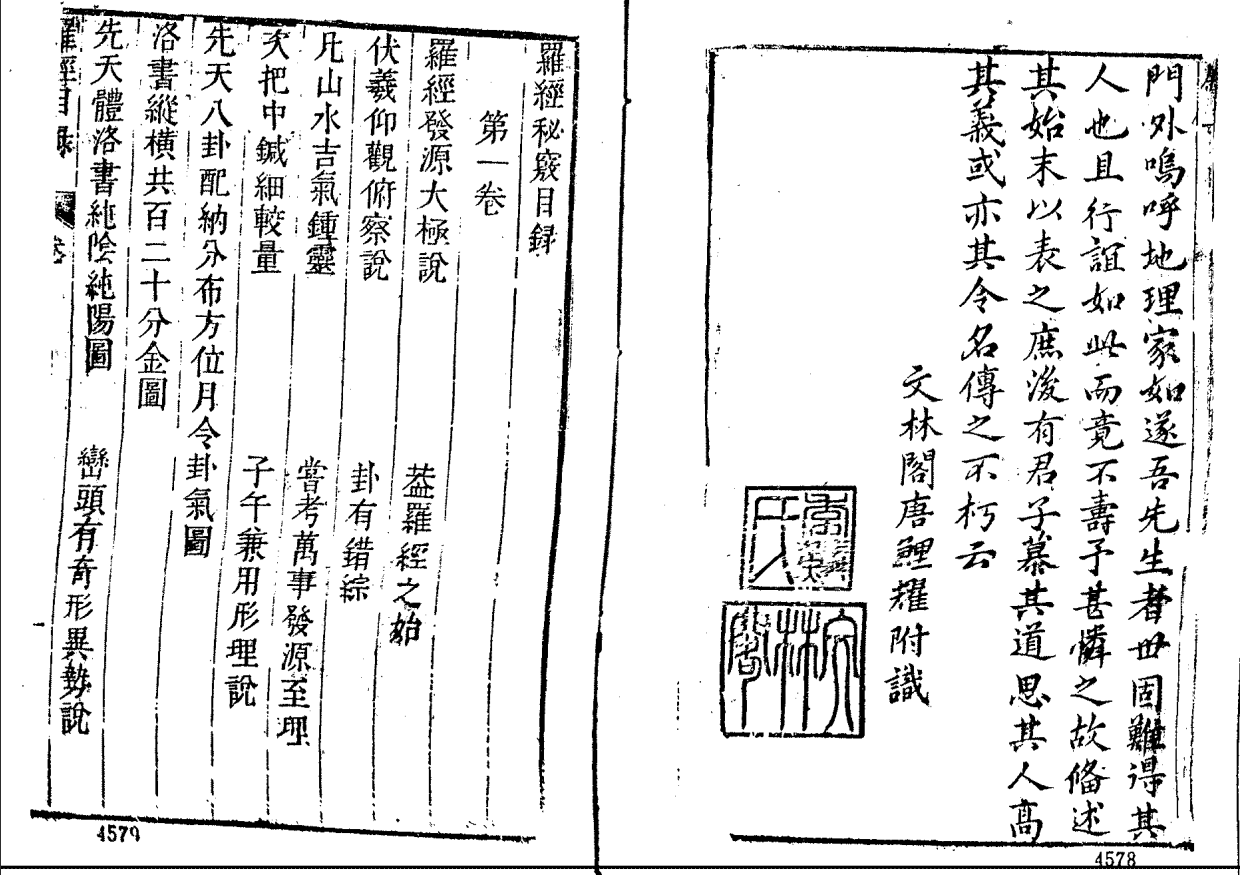 門外嗚呼地理家如遂吾先生者世固難得其
人也且行誼如此而竟不壽予甚憐之故俻述
其始末以表之庶後有君子慕其道思其人高
其義或亦其令名傳之不朽云
文林閣唐鯉耀附識
4578
羅經秘竅目録
第一卷
羅經發源大極說 葢羅經之始
伏羲仰觀俯察說 卦有錯綜
凡山水吉氣鍾靈 嘗考萬事發源至理
次把中鍼細較量 子午兼用形理說
先天八卦配納分布方位月令卦氣圖
洛書縱橫共百二十分金圖
先天體洛書純陰純陽圖 巒頭有奇形異勢說
羅經目錄 卷
4579